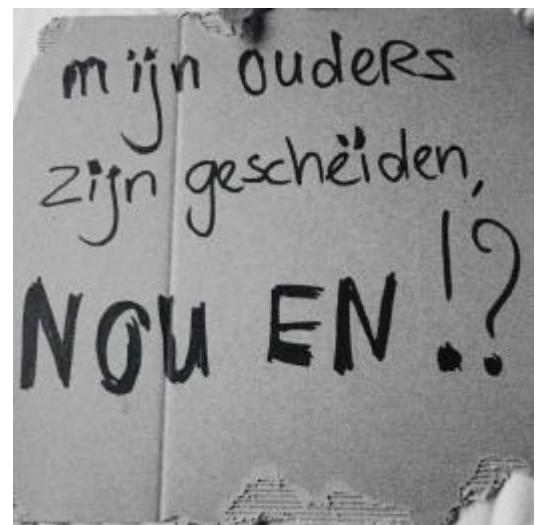 mijn ouders
zijn gescheïden,
NOU EN!?